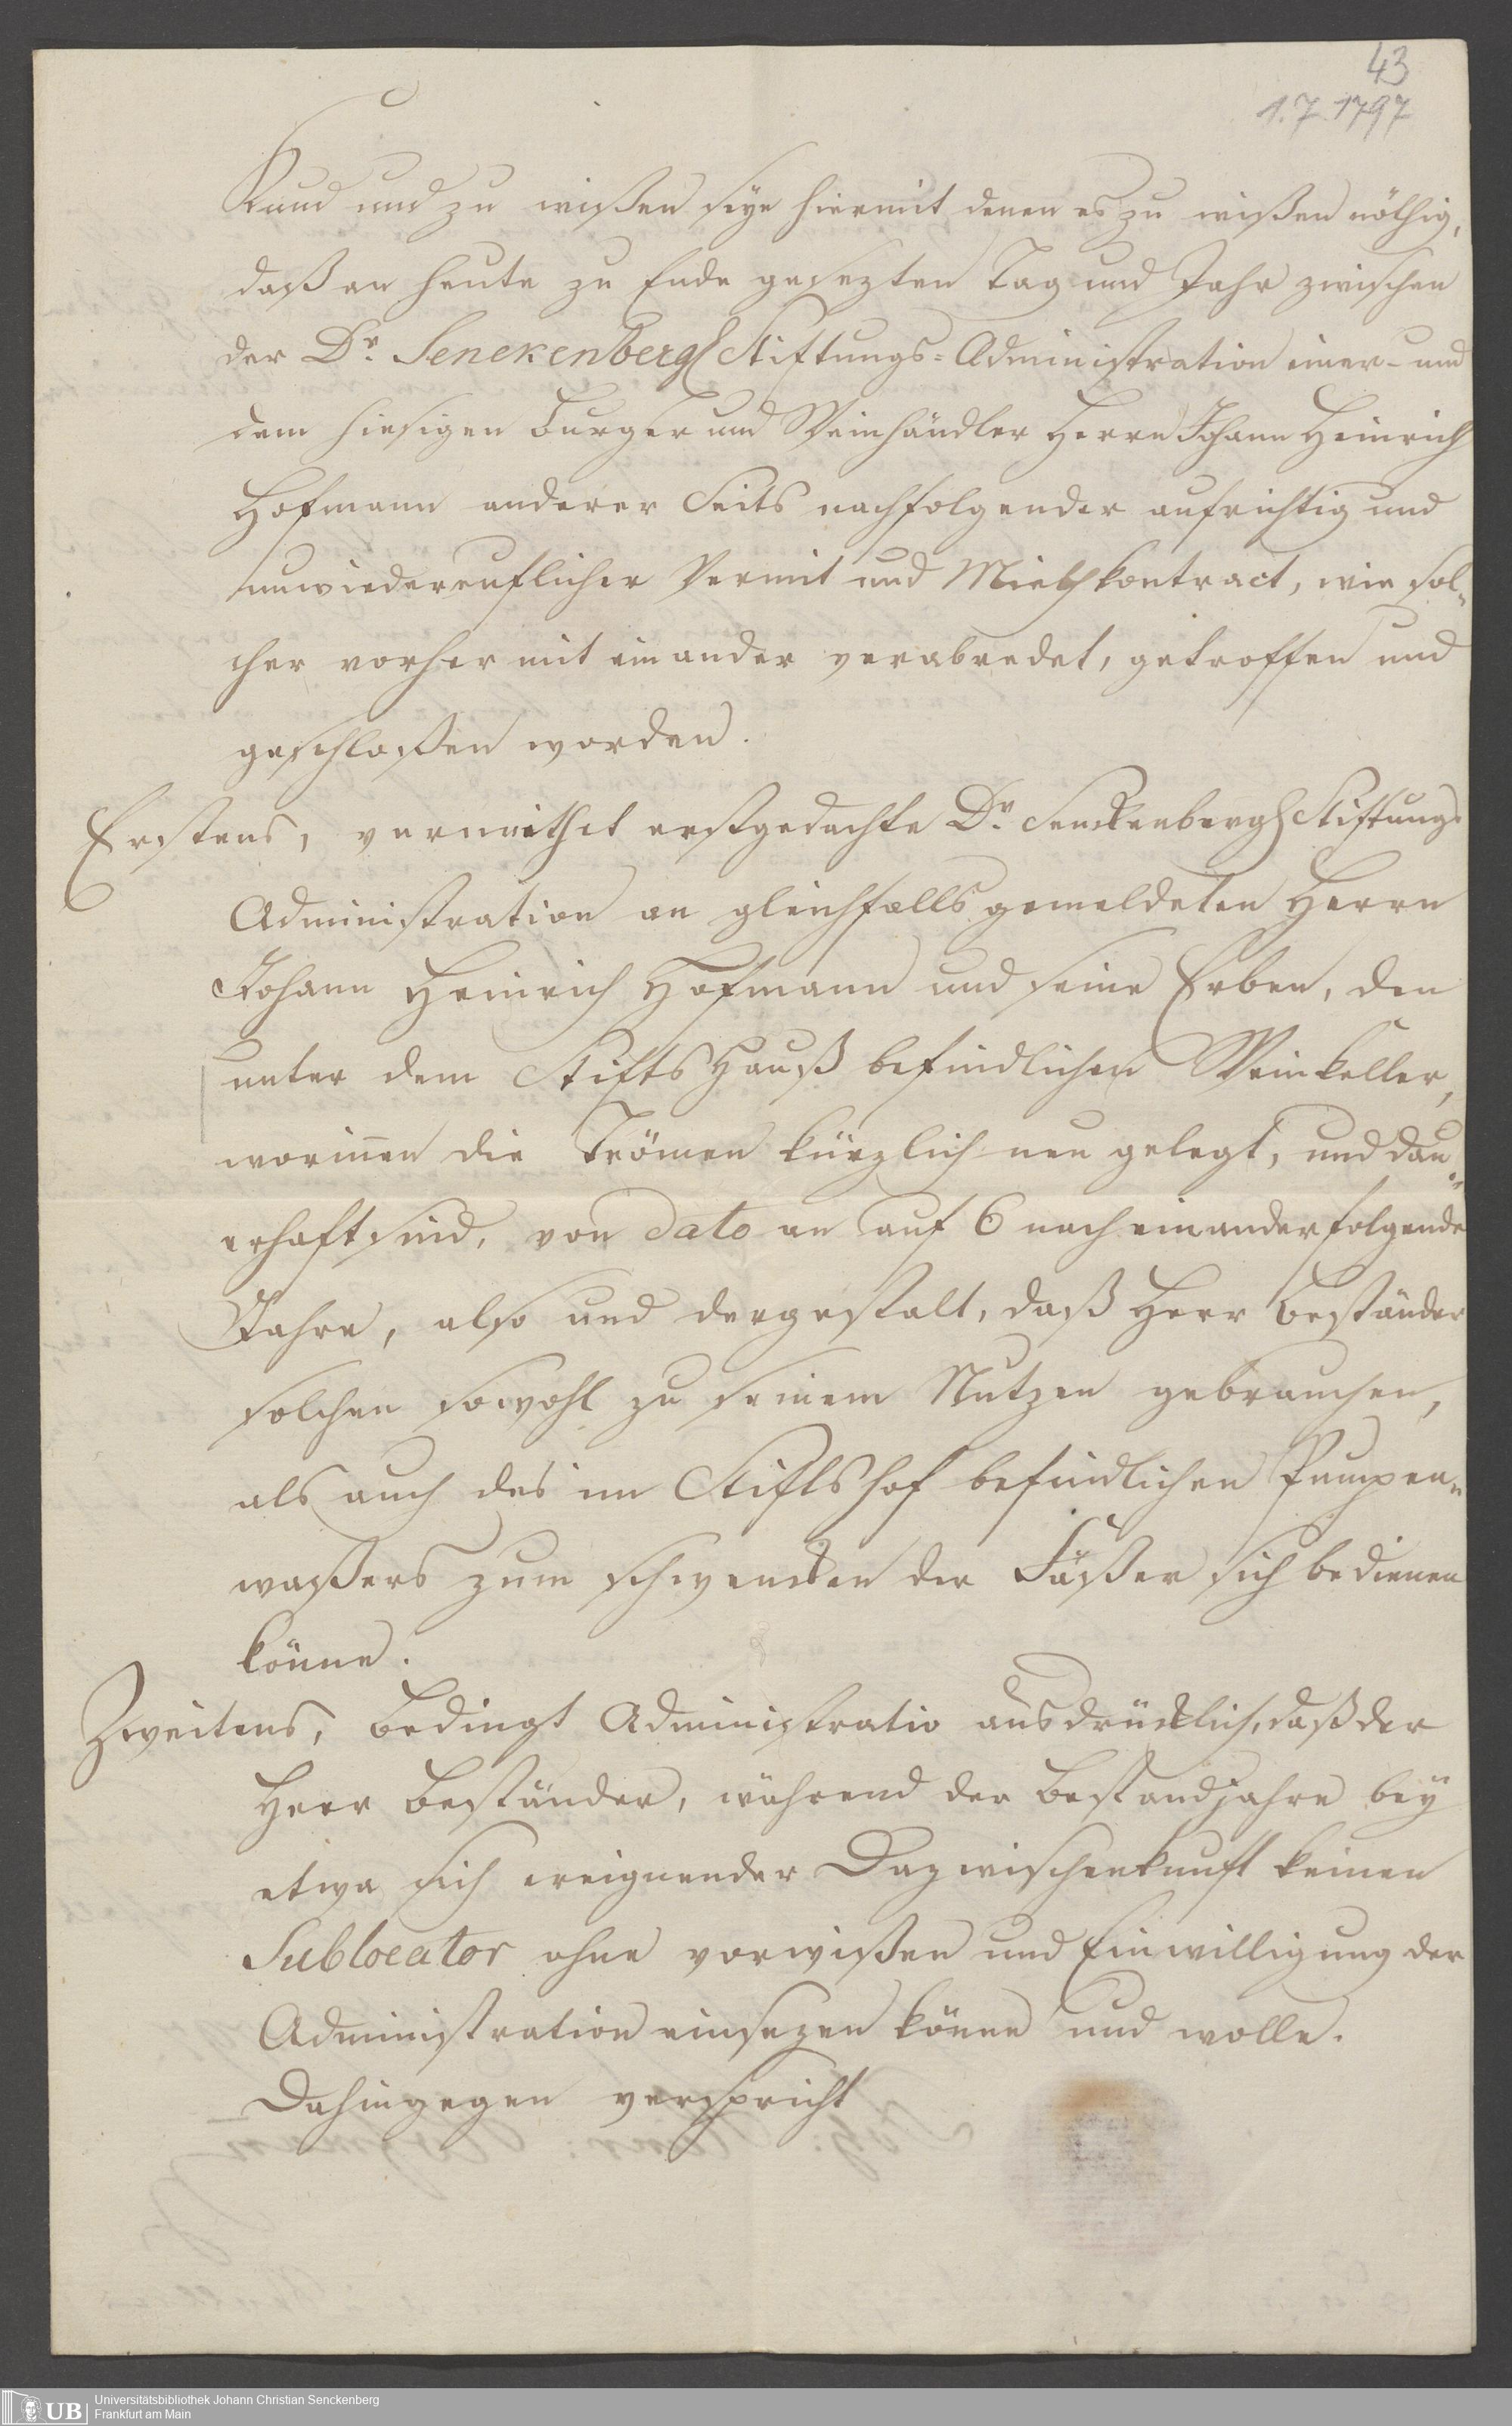 43
1.7.1797
Kund und zu wißen seye hiermit denen es zu wißen nöthig,
daß an heute zu Ende gesezten Tag und Jahr zwischen
der Dr. Senckenberg Stiftungs-Administration einer- und
dem hiesigen Burger und Weinhändler Herrn Johann Heinrich
Hofmann anderer Seits nachfolgender aufrichtig und
unwiederruflicher Vermit und Miethkontract, wie sol-
cher vorher mit einander verabredet, getroffen und
geschloßen worden.
Erstens, vermithet erstgedachte Dr. Senckenberg Stiftungs
Administration an gleichfalls gemeldeten Herrn
Johann Heinrich Hofmann und seine Erben, den
unter dem Stifts Hauß befindlichen Weinkeller,
worinnen die Trömen kürzlich neu gelegt, und dau-
erhaft sind, von dato an auf 6 nach einander folgende
Jahre, also und dergestalt, daß Herr Beständer
solchen sowohl zu seinem Nutzen gebrauchen,
als auch des im Stiftshof befindlichen Pumpen-
waßers zum schwencken der Fäßer sich bedienen
könne.
Zweitens, bedingt Administratio ausdrücklich, daß der
Herr Beständer, während der Bestandjahre bey
etwa sich ereignender Dazwischenkunft keinen
Sublocator ohne vorwißen und Einwilligung der
Administration einsezen könne und wolle.
Dahingegen verspricht
UB
Universitätsbibliothek Johann Christian Senckenberg
Frankfurt am Main